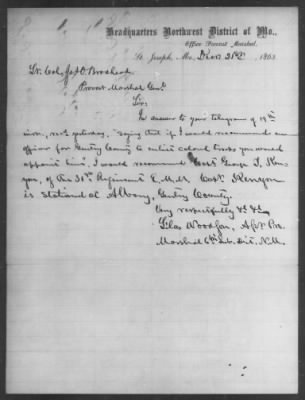 Headquarters Northwest District of Mo.,
Office Provost Marshal,
St. Joseph, Mo., Decr 21st 1863
Lt. Col. Jas. O. Broadhead,
Provost Marshal Genl.
Sir,
In answer to your telegram of 19th
recd. yesterday, "Saying that if I would recommend an
officer for Gentry County to enlist colored troops you would
appoint him", I would recommend Capt George I. Ken-
yon, of the 31st Regiment E.M.M. Capt Kenyon
is stationed at Albany, Gentry County.
Very respectfully &c &c
Silas Woodson, Asst Pro.
Marshal 6th Sub. Dist. N.M.